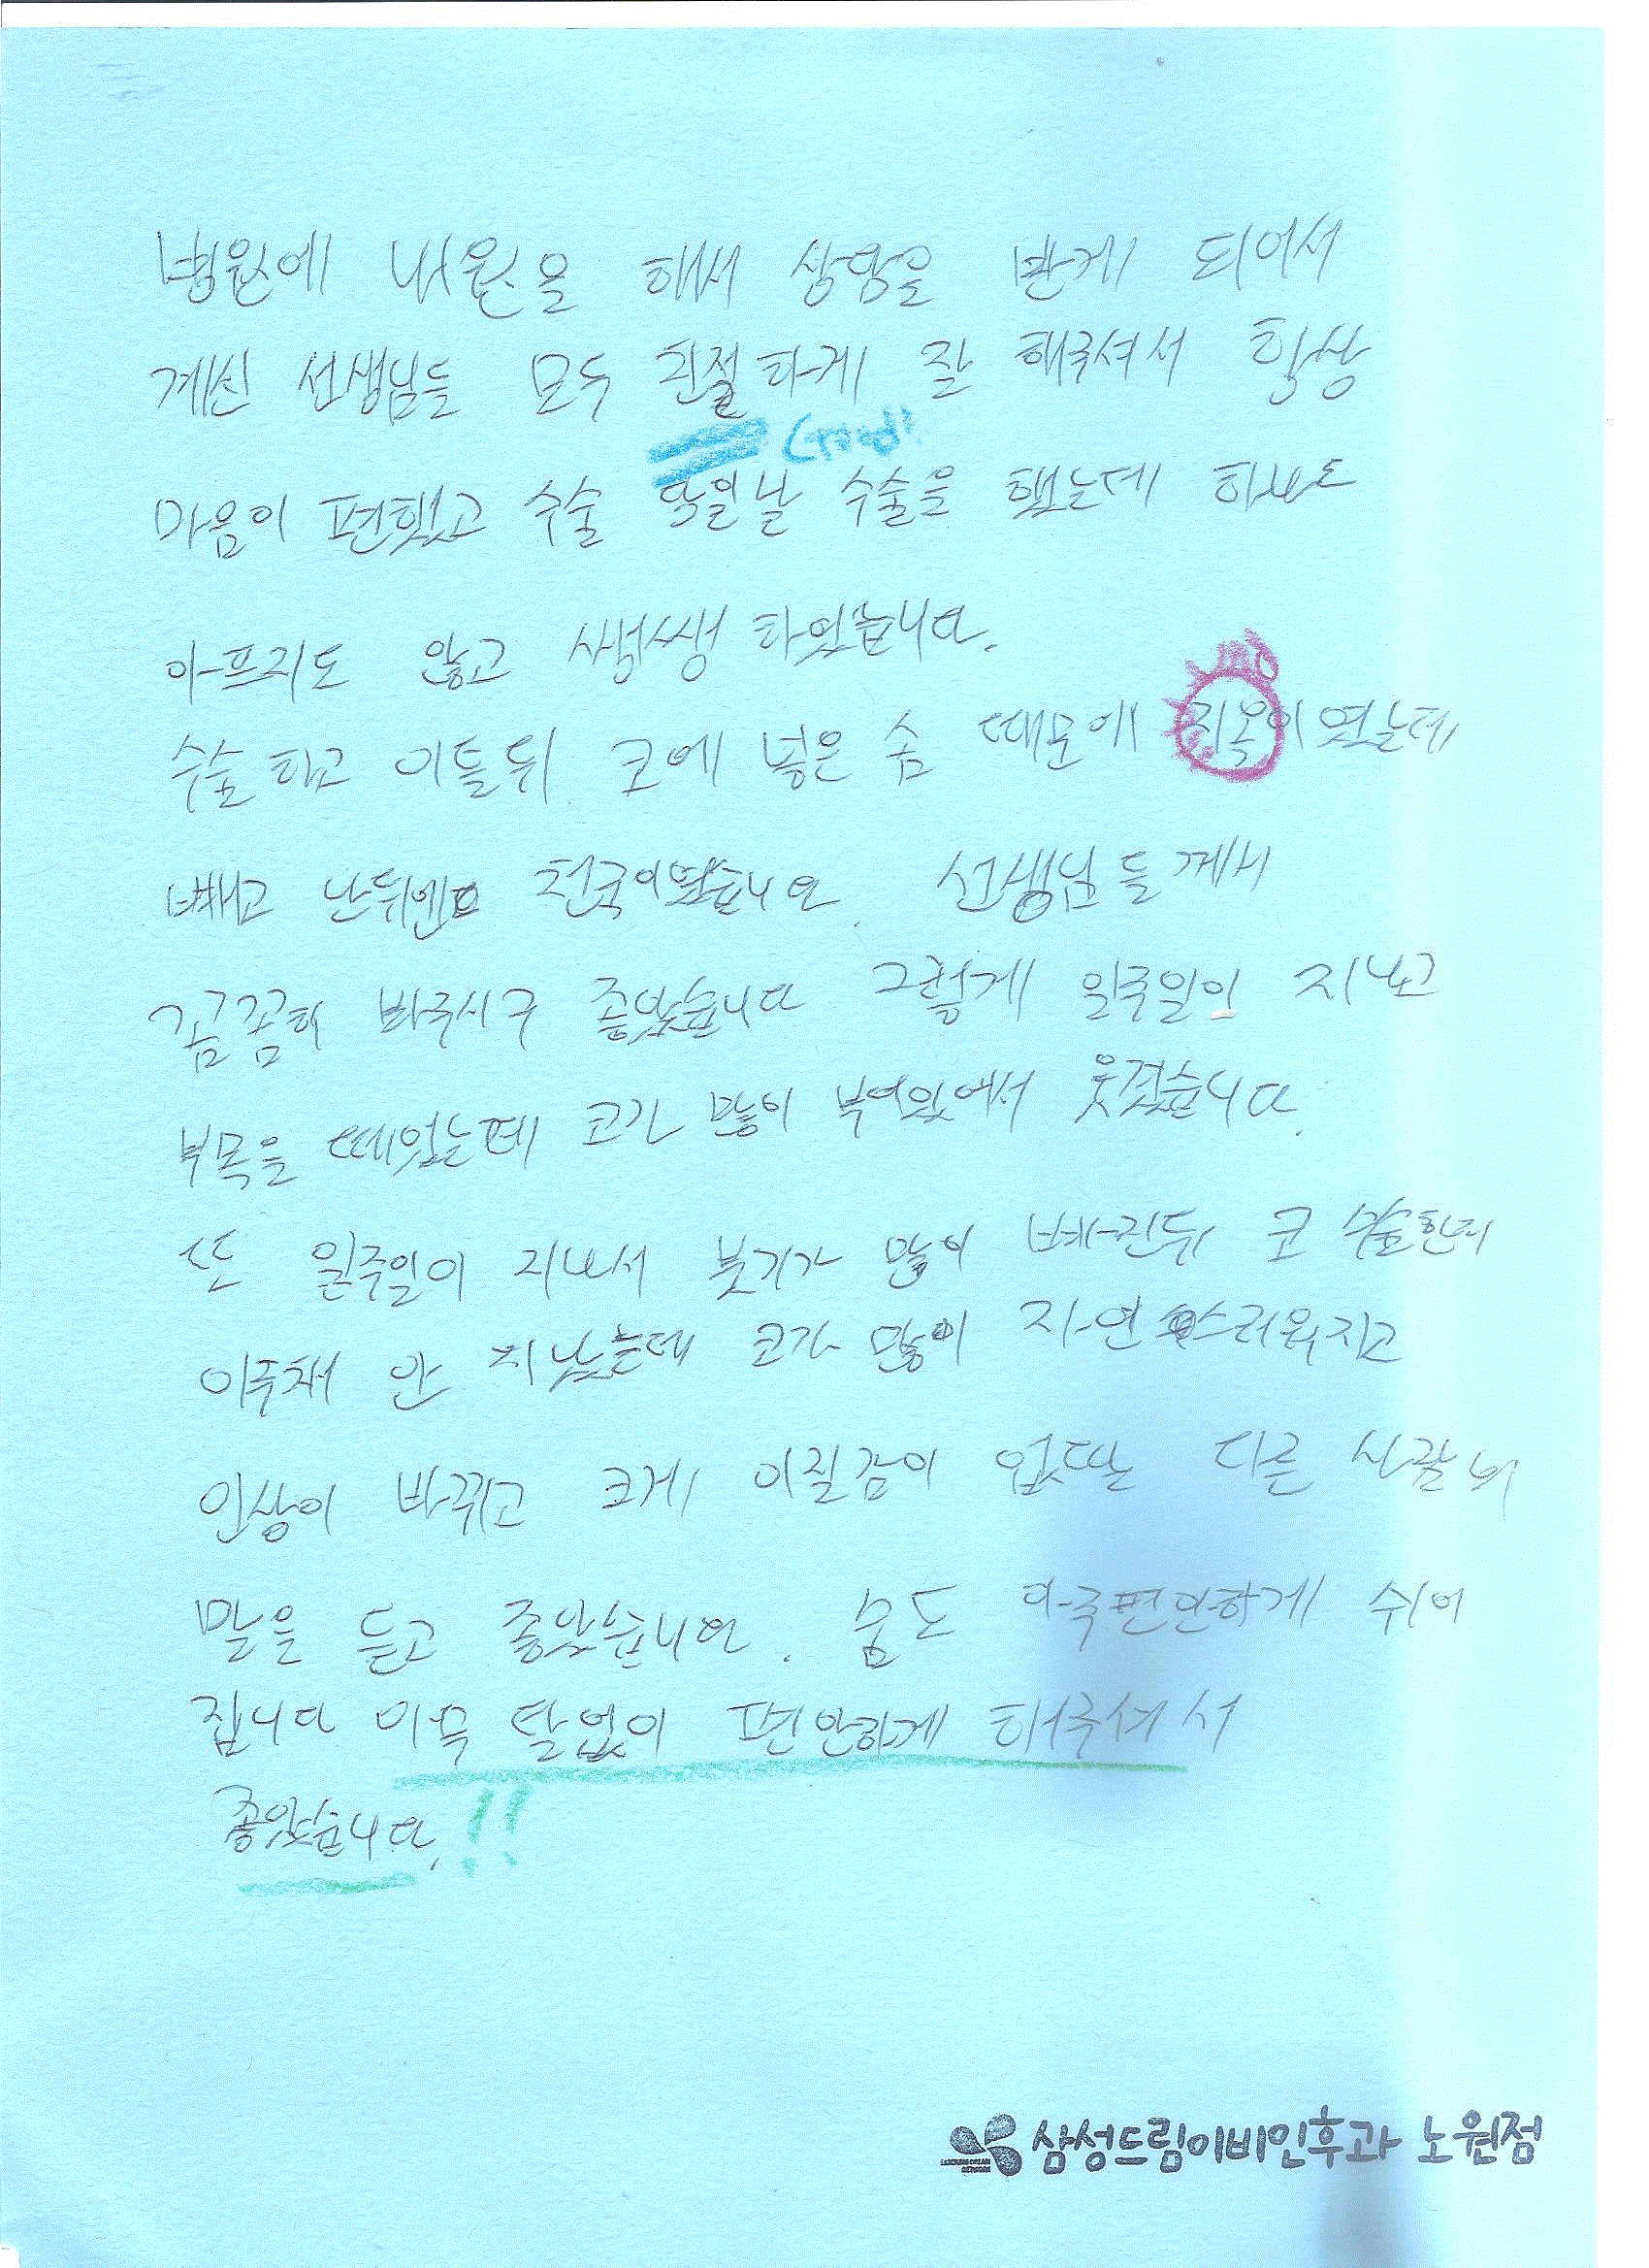 병원에 내원을 해서 상담을 받게 되어서
계신 선생님들 모두 친절하게 잘 해주셔서 항상
Good!
마음이 편했고 수술 당일날 수술을 했는데 하나도
아프지도 않고 쌩쌩 하였습니다.
수술하고 이틀뒤 코에 넣은 솜 때문에 지옥이였는데
빼고 난뒤엔 천국이였습니다. 선생님들께서
꼼꼼히 봐주시구 좋았습니다 그렇게 일주일이 지나고
부목을 떼었는데 코가 많이 부어있어서 웃겼습니다.
또 일주일이 지나서 붓기가 많이 빠진뒤 코 수술한지
이주채 안 지났는데 코가 많이 자연스러워지고
인상이 바뀌고 크게 이질감이 없다는 다른 사람의
말을 듣고 좋았습니다. 숨도 아주편안하게 쉬어
집니다 아무 탈없이 편안하게 해주셔서
좋았습니다.!!
삼성드림이비인후과 노원점